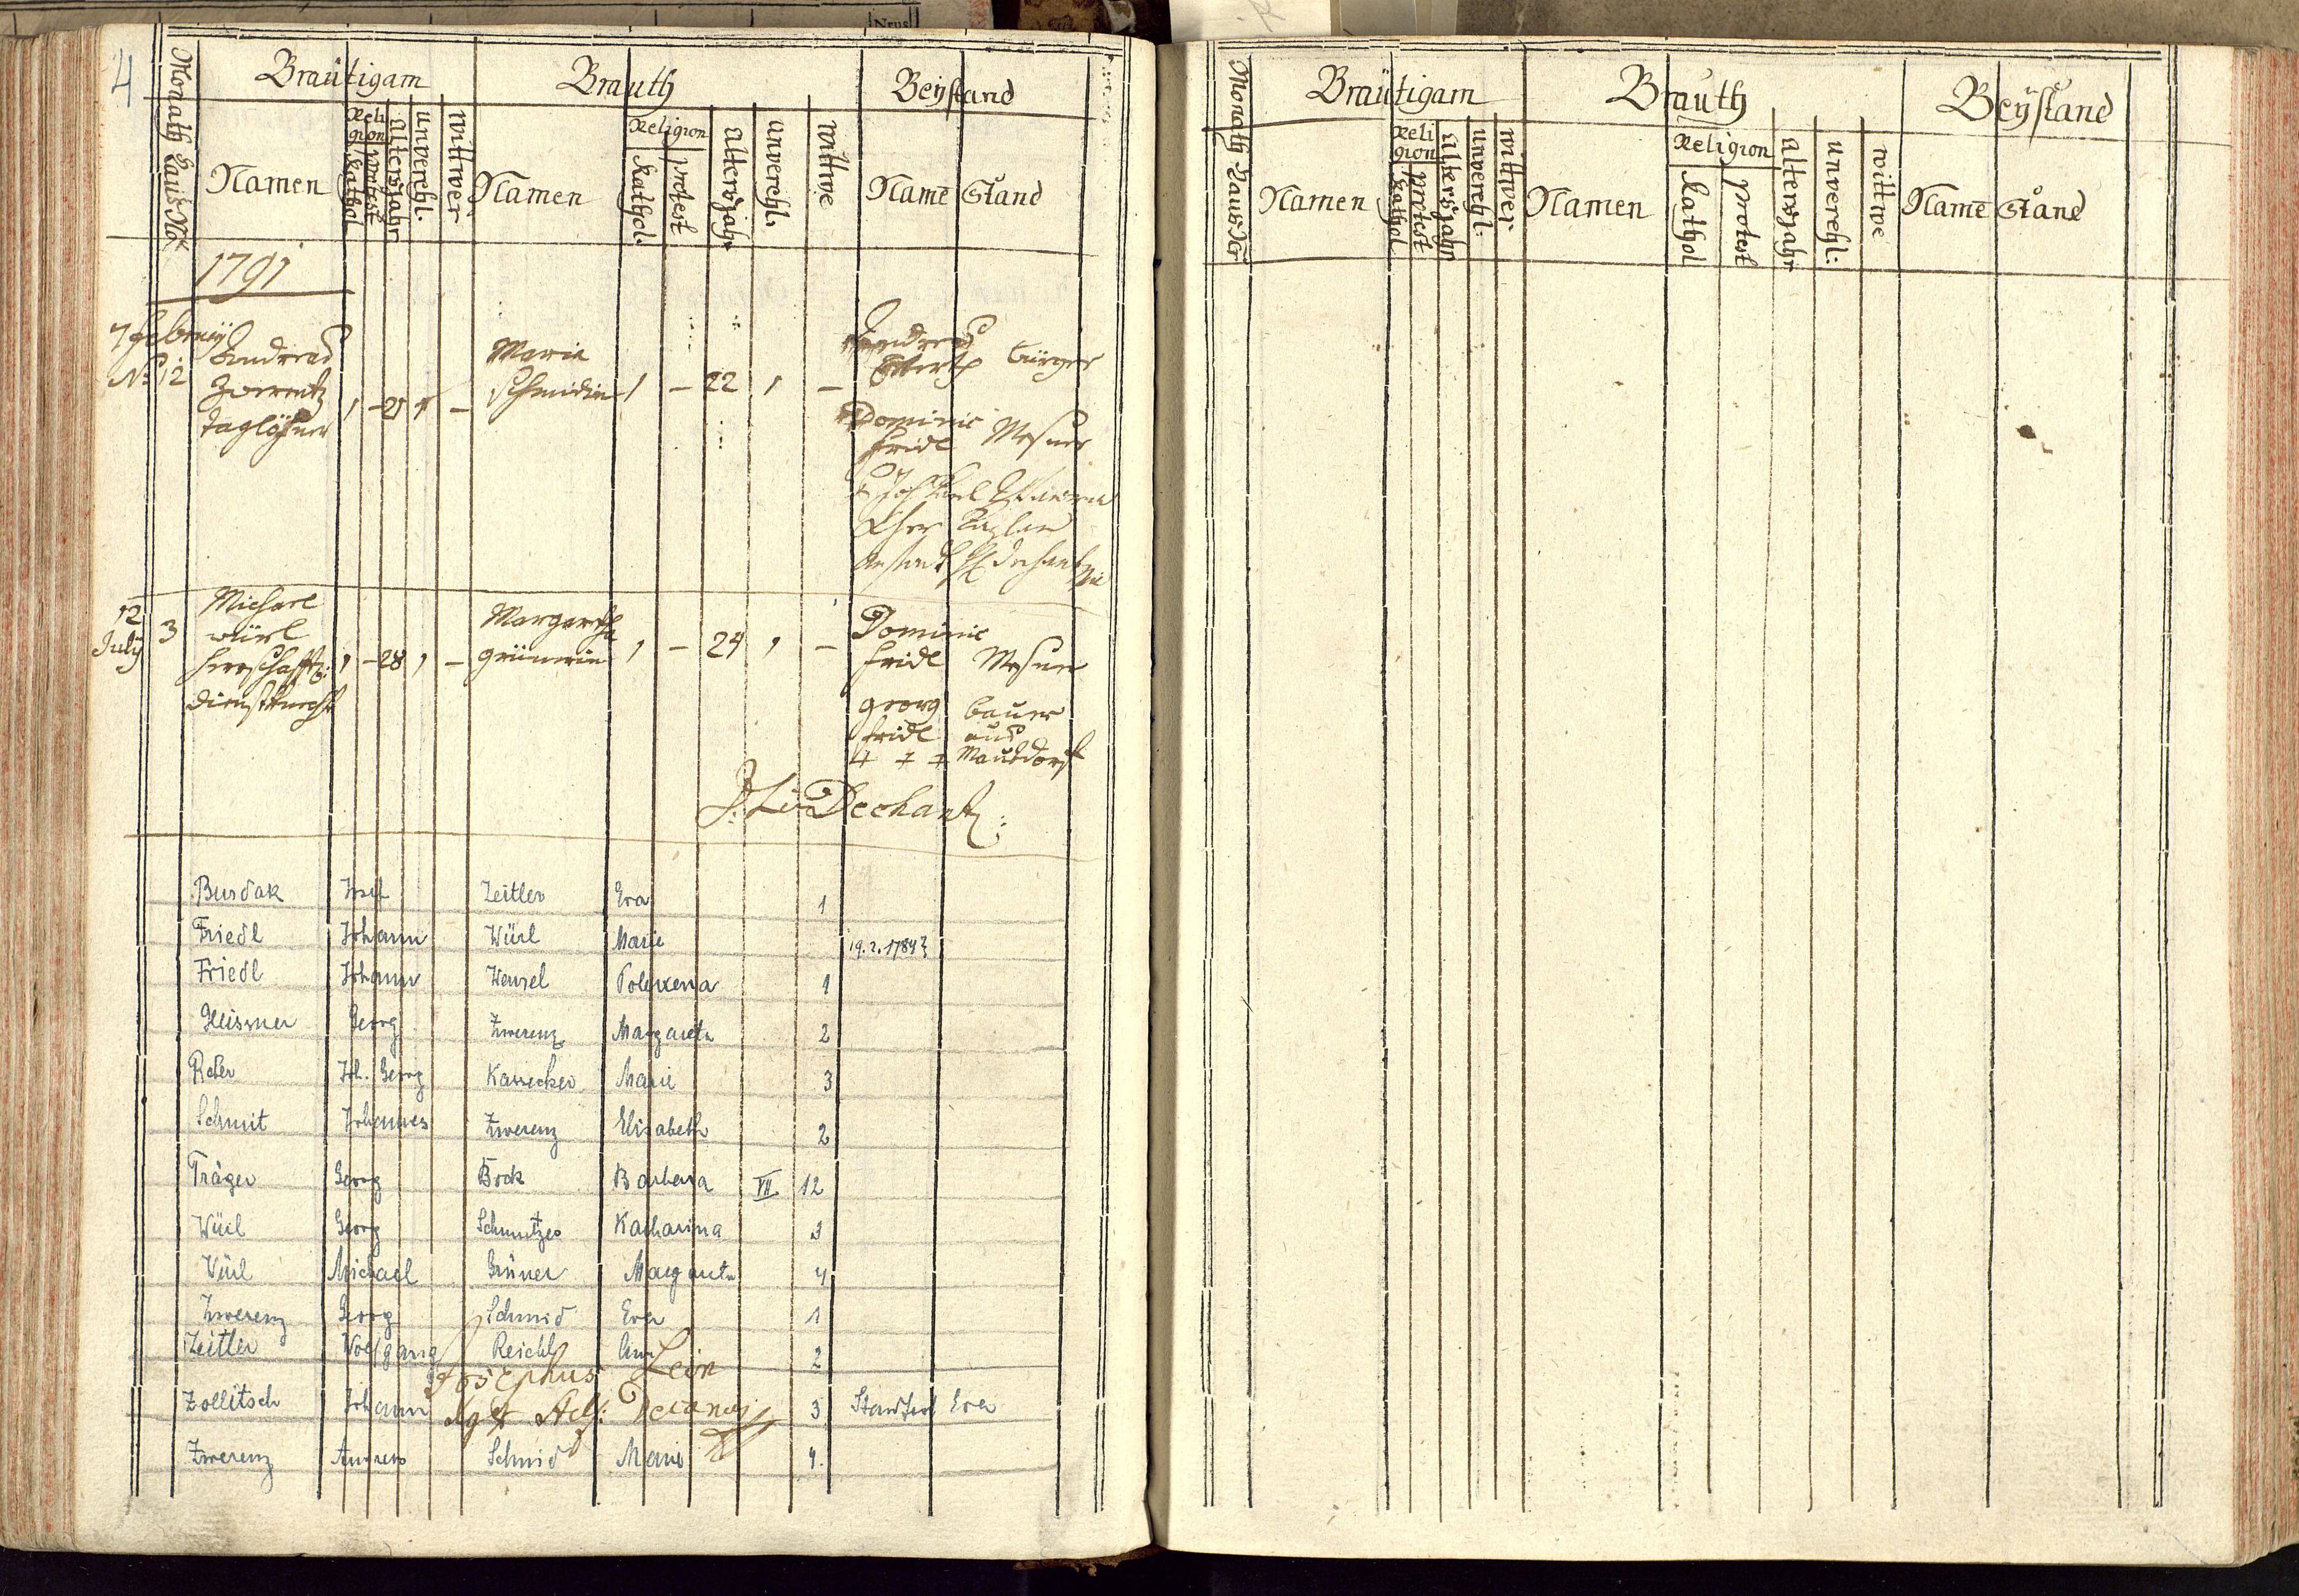 4
Monath Haus No
Bräutigam Brauth Beystand
Namen Religion Kathol. protest altersjahr unverehl. wittwer Namen Religion Kathol. protest altersjahr unverehl. wittwe Name Stand
1791
7 februÿ
No 12
Andreas
Zwerentz
Taglöhner 1 – 21 1 –
Maria
Schmidin 1 – 22 1 –
Andreas
burger
Dominic
fridl Mesner
12
July 3
Michael
würl
herrschaftl:
dienstknecht 1 – 28 1 –
Margaretha
grünerin 1 – 24 1 –
Dominic
fridl Mesner
georg bauer
fridl aus
‡ ‡ ‡ Mautdorf
Dechant
Busdak Josef Zeitler Eva 1
Friedl Johann Würl Marie 19.2.1784?
Friedl Johann Wenzel Polexena 1
Georg Zwerenz Margareta 2
Joh. Georg Marie 3
Schmit Johannes Zwerenz Elisabeth 2
Träger Georg Bock Barbara VII 12
Würl Georg Katharina 3
Würl Michael Grüner Margareta 4
Zwerenz Georg Schmid Eva 1
Zeitler Wolfgang Reichl Anna 2
Josephus Lein
Zollitsch Johann 3 Eva
Decanus
Zwerenz Andreas Schmid Marie 4.
Monath Haus Nr
Bräutigam Brauth Beÿstand
Namen Religion Kathol. protest altersjahr unverehl: wittwer Namen Religion Kathol protest altersjahr unverehl: wittwe Name Stand